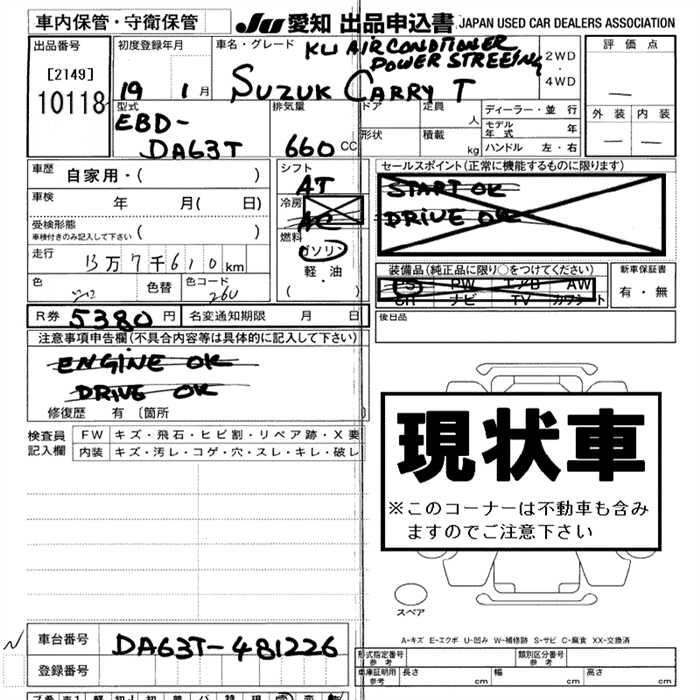 車内保管・守衛保管 JU 愛知 出品申込書 JAPAN USED CAR DEALERS ASSOCIATION
出品番号 初度登録年月 車名・グレード KU AIR CONDITIONER 2WD 評価点
POWER STREEING
[2149] 19 1 月 SUZUK CARRY T ・ 4WD
10118 型式 排気量 ドア 定員 人 ディーラー・並行 外装 内装
EBD- モデル年式 年
DA63T 660 CC 形状 積載 kg ハンドル 左・右
車歴 自家用・( ) シフト AT セールスポイント(正常に機能するものに限ります)
車検 年 月( 日) 冷房 AC START OK
DRIVE OK
受検形態 車検付きのみ記入して下さい ( ) 燃料 ガソリン
走行 13万7千610km 軽・油 装備品(純正品に限り○をつけてください) 新車保証書
色 色替 色コード 26U ( ・ ) PS PW エアB AW 有・無
ナビ TV
R券 5380円 名変通知期限 月 日 後日品
注意事項申告欄(不具合内容等は具体的に記入して下さい)
ENGINE OK
DRIVE OK
修復歴 有〔箇所 〕
検査員 FW キズ・飛石・ヒビ割・リペア跡・X要
記入欄 内装 キズ・汚レ・コゲ・穴・スレ・キレ・破レ
現状車
※このコーナーは不動車も含み
ますのでご注意下さい
スペア
A-キズ E-エクボ U-凹み W-補修跡 S-サビ C-腐食 XX-交換済
車台番号 DA63T-481226 形式指定番号 参考 類別区分番号 参考
登録番号 車庫証明用 参考 長さ cm 幅 cm 高さ cm